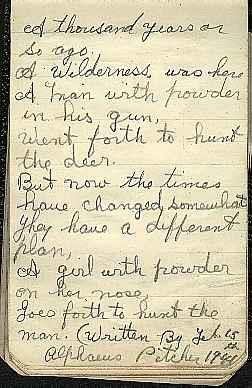 A thousand years or
so ago,
A Wilderness, was here
A man with powder
in his gun,
Went forth to hunt
the deer.
But now the times
have changed somewhat
They have a different
plan,
A girl with powder
on her nose,
Goes forth to hunt the
man. (Written By Feb. 15
Alphaeus Pitcher